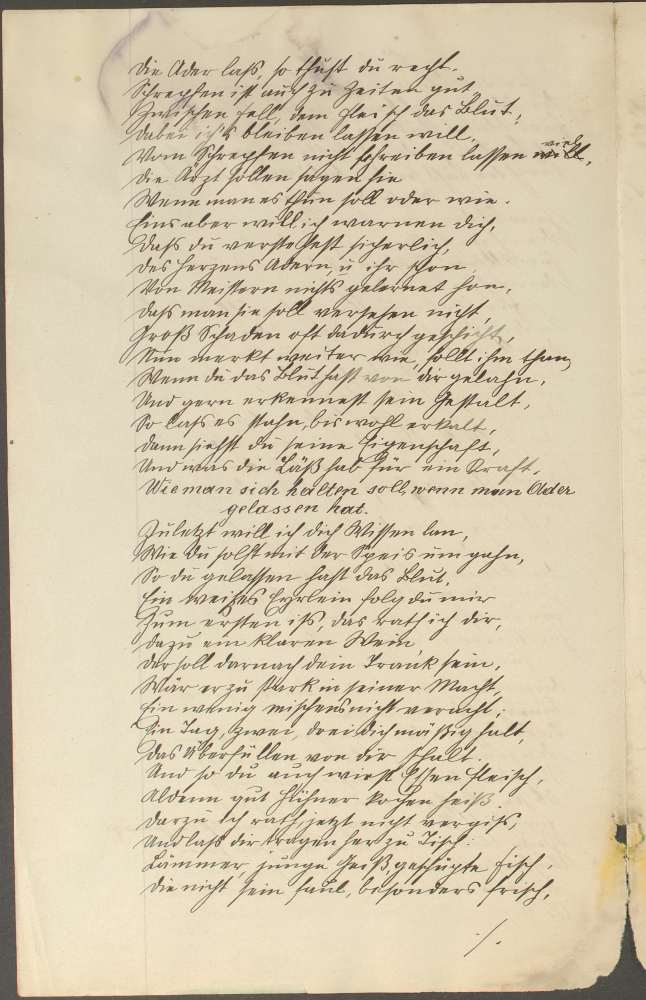 die Ader laß, so thust du recht.
Schrepfen ist auch zu Zeiten gut,
Zwischen Fell, dem Fleisch das Blut,
dabei ich's bleiben lassen will,
Vom Schrepfen nicht schreiben lassen viel,
Die Aerzt sollen sagen hie
Wenn man es thun soll oder wie.
Eins aber will ich warnen dich,
Daß du verstehest sicherlich,
des Herzens Adern, u ihr schon
Von Meistern nichts gelernet hon,
daß man sie soll versehen nicht,
Groß Schaden oft dadurch geschicht,
Nun merkt weiter wie, sollt ihm than
Wenn du das Blut hast von dir gelahn,
Und gern erkennest sein Gestalt,
So laß es stahn, bis wohl erkalt,
dann siehst du seine Eigenschaft,
Und was die Läß hab für ein Kraft.
Wie man sich halten soll, wenn man Ader
gelassen hat.
Zuletzt will ich dich Wissen lan,
Wie du sollst mit der Speis umgahn,
So du gelassen hast das Blut,
Ein weißes Eyrlein folg du mir
Zum ersten iß, das rath ich dir,
dazu ein klaren Wein
der soll darnach dein Trank sein,
Wär er zu stark in seiner Macht,
Ein wenig mischens nicht veracht;
Ein Tag, zwei, drei dich mäßig halt,
das Überfüllen von dir schalt.
Und so du auch wirst Essen Fleisch,
Aldenn gut Hühner kochen heiß.
darzu ich rath, jetzt nicht vergiß,
Und laß dir tragen her zu Tisch:
Lämmer, junge Geiß, geschupte Fisch,
die nicht sein faul, besonders frisch,
./.